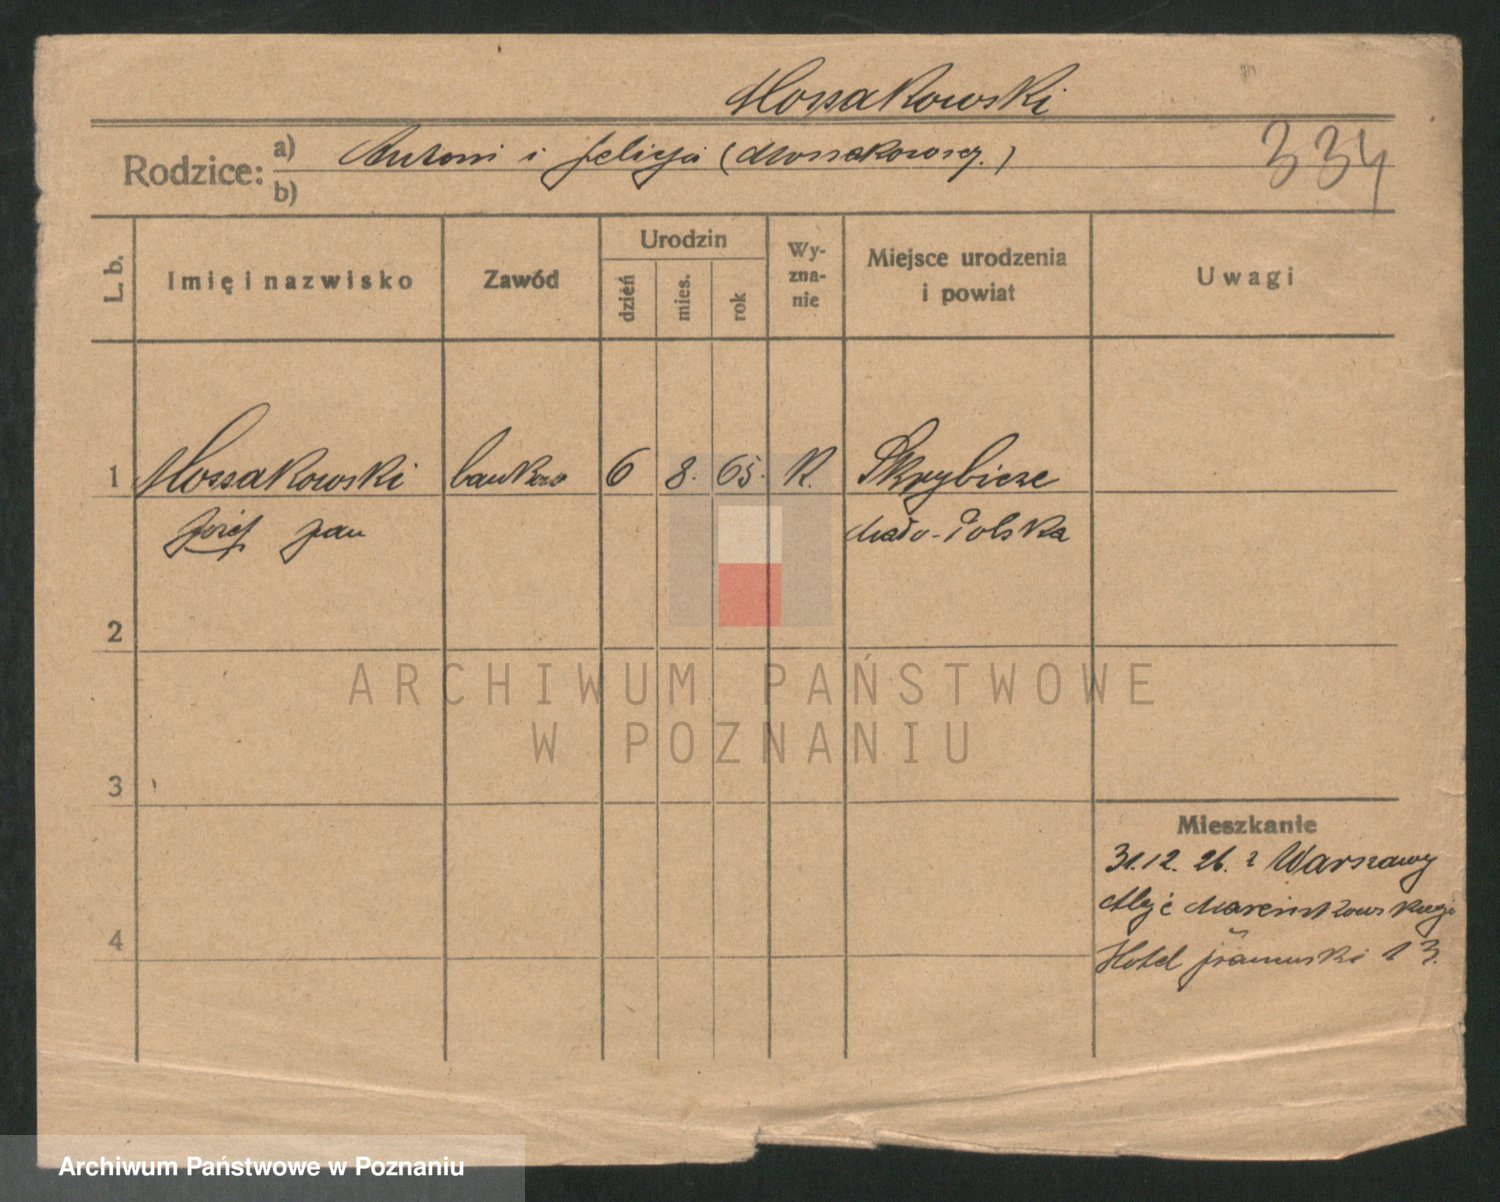 Mossakowski
Rodzice: a) Antoni i Felicja (Mossakowscy.)
b)
334
L. b.
Imię i nazwisko
Zawód
Urodzin
dzień
mies.
rok
Wy-
zna-
nie
Miejsce urodzenia
i powiat
Uwagi
1 Mossakowski 6 8. 65. K. Skrybicze
Józef Jan Mało-Polska
2
ARCHIWUM PAŃSTWOWE
W POZNANIU
3
Mieszkanie
31.12. 26. z Warszawy
Aleje Marcinkowskiego
4
Hotel 13.
Archiwum Państwowe w Poznaniu